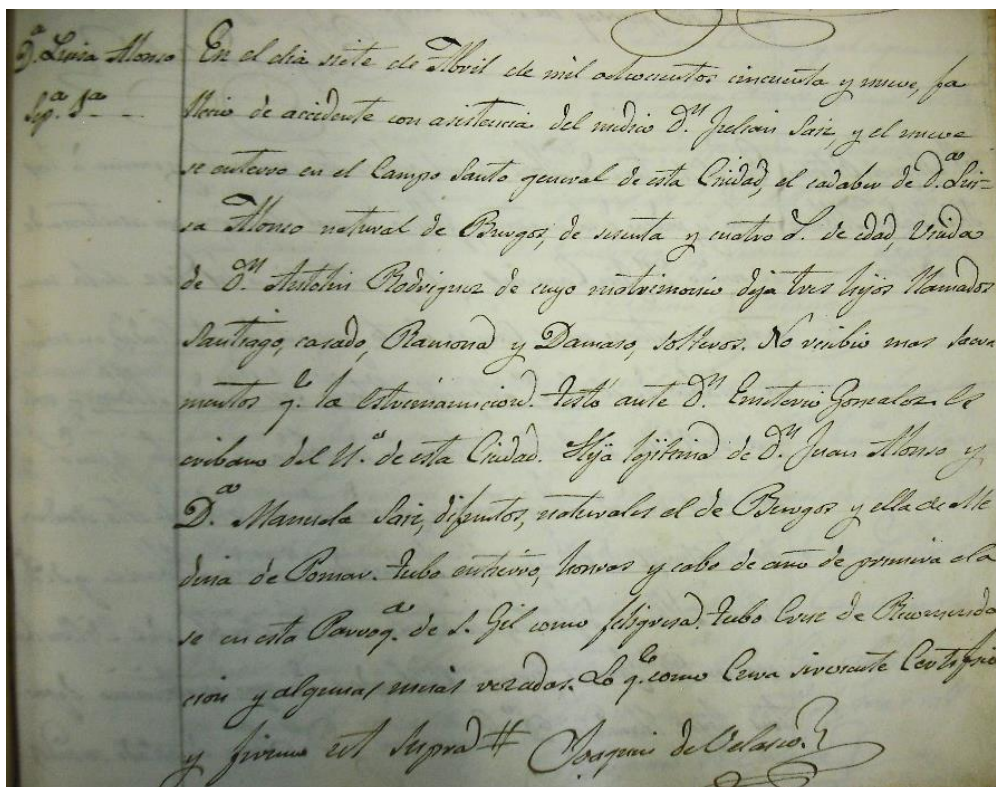 D.ª Luisa Alonso
Sep.ª 1.ª
En el dia siete de Abril de mil ochocientos cincuenta y nueve, fa
llecio de accidente con asistencia del medico D.n Julian Saiz, y el nueve
se enterro en el Campo Santo general de esta Ciudad, el cadaber de D.ª Lui=
sa Alonso natural de Burgos, de sesenta y cuatro a. de edad, Viuda
de D.n Antolin Rodriguez de cuyo matrimonio deja tres hijos llamados
Santiago, casado, Ramona y Damaso, solteros. No recibio mas Sacra
mentos q.e la Estremauncion. Testó ante D.n Emeterio Gonzalez Es
cribano del N.º de esta Ciudad. Hija lejitima de D.n Juan Alonso y
D.ª Manuela Saiz, difuntos, naturales el de Burgos y ella de Me
dina de Pomar. tubo entierro, honras y cabo de año de primera cla
se en esta Parroq.ª de S. Gil como feligresa. tubo Cruz de Recomenda
cion y algunas misas rezadas. Lo q.e como Cura sirviente Certifico
y firmo ut Supra # Joaquin de Velasco.